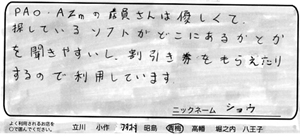 PAO・AZmの店員さんは優しくて、
探しているソフトがどこにあるかとか
を聞きやすいし、割引き券をもらえたり
するので利用しています
ニックネーム ショウ
よく利用されるお店を
○で選んでください。 立川 小作 昭島 青梅 高幡 堀之内 八王子